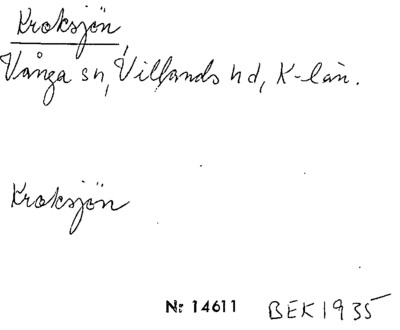 Kroksjön,
Vånga sn, Villands hd, K-län.
Kroksjön
Nr 14611 BEK 1935